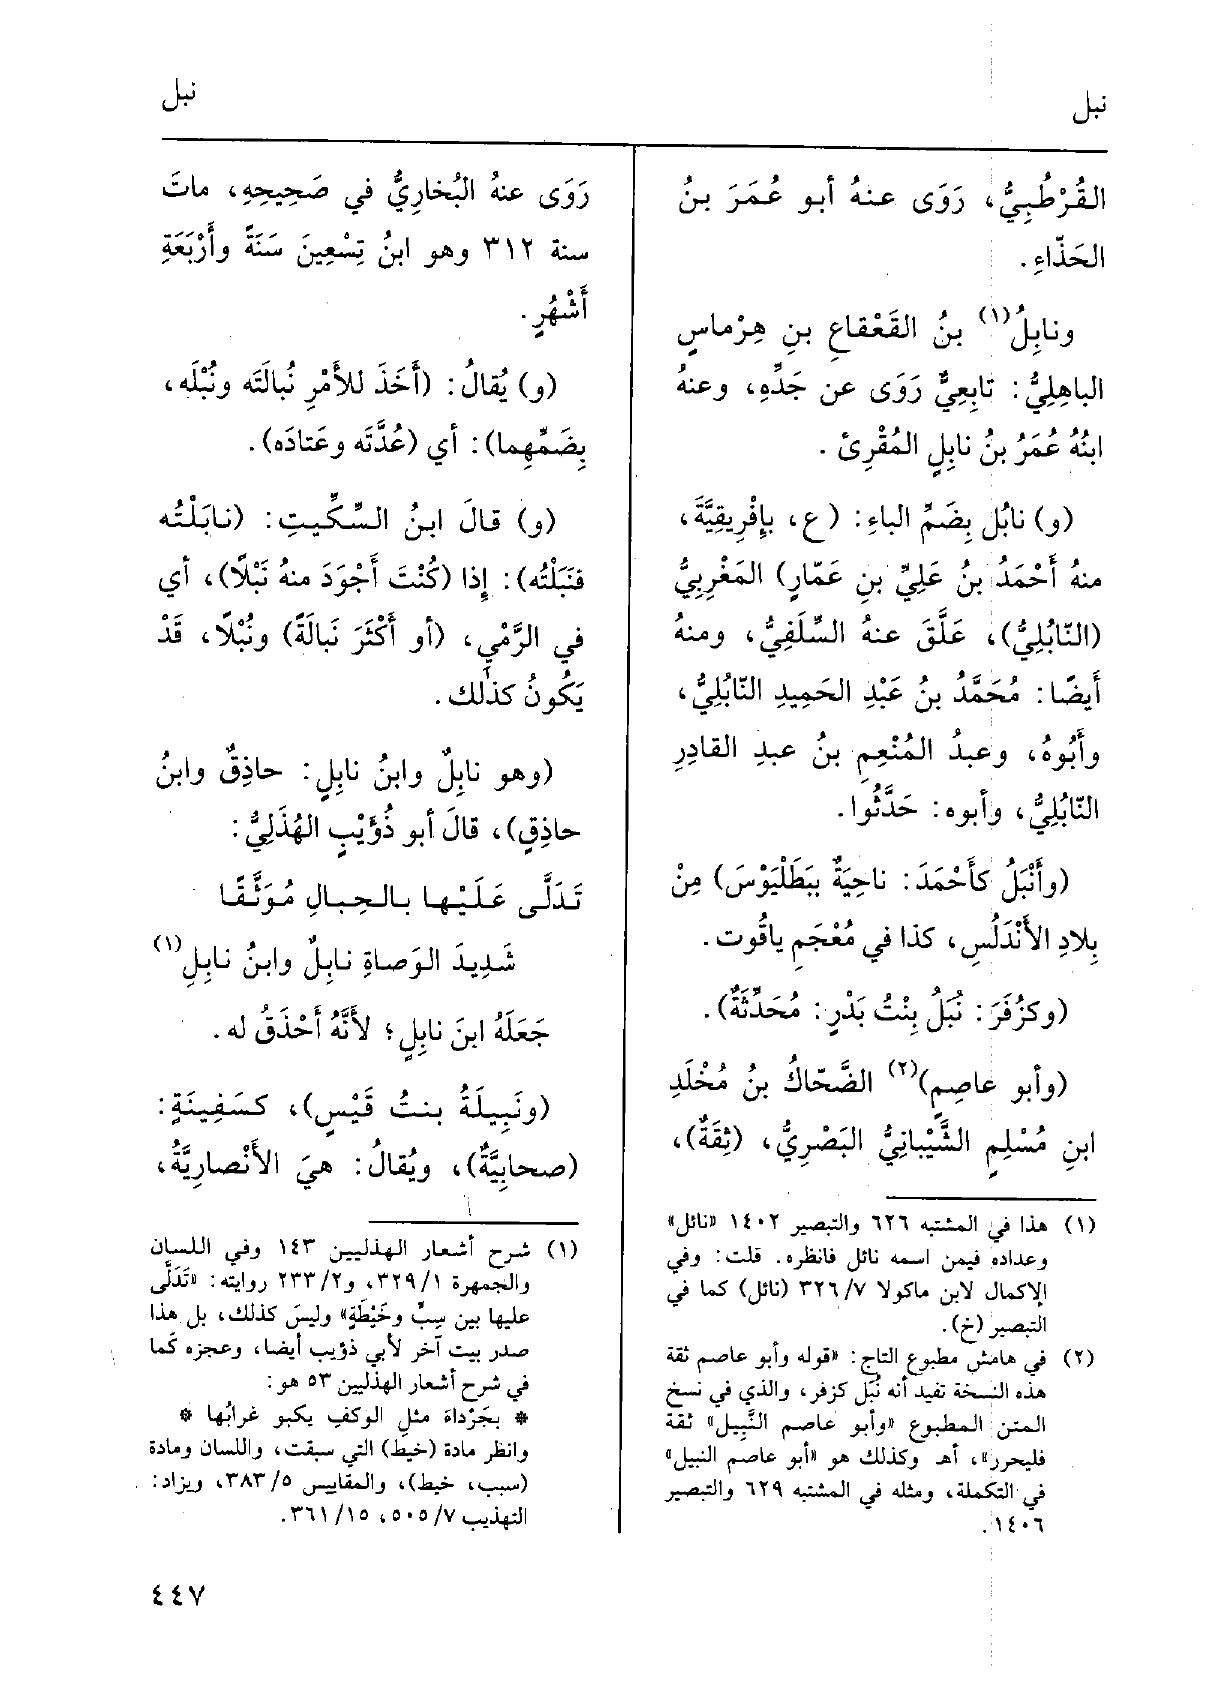 نبل
نبل
القُرْطُبِيُّ، رَوَى عنهُ أبو عُمَرَ بنُ
الحَذّاءِ.
ونابِلُ(١) بنُ القَعْقاعِ بنِ هِرْماسٍ
الباهِلِيُّ: تابِعِيٌّ رَوَى عن جَدِّهِ، وعنهُ
ابنُهُ عُمَرُ بنُ نابِلٍ المُقْرِئ.
(و) نابُل بِضَمِّ الباءِ: (ع، بإِفْرِيقِيَّةَ،
منهُ أَحْمَدُ بنُ عَلِيِّ بنِ عَمّارٍ) المَغْرِبِيُّ
(النّابُلِيُّ)، عَلَّقَ عنهُ السِّلَفِيُّ، ومنهُ
أَيضًا: مُحَمَّدُ بنُ عَبْدِ الحَمِيدِ النّابُلِيُّ،
وأَبُوهُ، وعبدُ المُنْعِمِ بنُ عبدِ القادِرِ
النّابُلِيُّ، وأبوه: حَدَّثُوا.
(وأَنْبَلُ كأَحْمَدَ: ناحِيَةٌ بِبَطَلْيَوْسَ) مِنْ
بِلادِ الأَنْدَلُسِ، كذا في مُعْجَمِ ياقُوت.
(وكزُفَرَ: نُبَلُ بِنْتُ بَدْرٍ: مُحَدِّثَةٌ).
(وأبو عاصِمٍ)(٢) الضَّحّاكُ بنُ مُخْلَدِ
ابنِ مُسْلِمٍ الشَّيْبانِيُّ البَصْرِيُّ، (ثِقَةٌ)،
(١) هذا في المشتبه ٦٢٦ والتبصير ١٤٠٢ «نائل»
وعداده فيمن اسمه نائل فانظره. قلت: وفي
الإكمال لابن ماكولا ٣٢٦/٧ (نائل) كما في
التبصير (خ).
(٢) في هامش مطبوع التاج: «قوله وأبو عاصم ثقة
هذه النسخة تفيد أنه نُبَل كزفر، والذي في نسخ
المتن المطبوع «وأبو عاصم النَّبِيل» ثقة
فليحرر»، أهـ وكذلك هو «أبو عاصم النبيل»
في التكملة، ومثله في المشتبه ٦٢٩ والتبصير
١٤٠٦.
رَوَى عنهُ البُخارِيُّ في صَحِيحِهِ، ماتَ
سنة ٣١٢ وهو ابنُ تِسْعِينَ سَنَةً وأَرْبَعَةِ
أَشْهُرٍ.
(و) يُقالُ: (أَخَذَ للأَمْرِ نُبالَتَه ونُبْلَه،
بِضَمِّهِما): أي (عُدَّتَه وعَتادَه).
(و) قالَ ابنُ السِّكِّيتِ: (نابَلْتُه
فنَبَلْتُه): إذا (كُنْتَ أَجْوَدَ منهُ نَبْلًا)، أي
في الرَّمْيِ، (أو أَكْثَرَ نَبالَةً) ونُبْلًا، قَدْ
يَكُونُ كذٰلك.
(وهو نابِلٌ وابنُ نابِلٍ: حاذِقٌ وابنُ
حاذِقٍ)، قالَ أبو ذُؤَيْبٍ الهُذَلِيُّ:
تَدَلَّى عَلَيْها بالحِبالِ مُوَثَّقًا
شَدِيدَ الوَصاةِ نابِلٌ وابنُ نابِلِ(١)
جَعَلَهُ ابنَ نابِلٍ؛ لأَنَّهُ أَحْذَقُ له.
(ونَبِيلَةُ بنتُ قَيْسٍ)، كسَفِينَةٍ:
(صحابِيَّةٌ)، ويُقالُ: هيَ الأَنْصارِيَّةُ،
(١) شرح أشعار الهذليين ١٤٣ وفي اللسان
والجمهرة ٣٢٩/١، و٢٣٣/٢ روايته: «تَدَلَّى
عليها بين سِبٍّ وخَيْطَةٍ» وليس كذلك، بل هذا
صدر بيت آخر لأبي ذؤيب أيضا، وعجزه كَما
في شرح أشعار الهذليين ٥٣ هو:
* بجَرْداءَ مثلِ الوكفِ يكبو غرابُها *
وانظر مادة (خيط) التي سبقت، واللسان ومادة
(سبب، خيط)، والمقاييس ٣٨٣/٥، ويزاد:
التهذيب ٥٠٥/٧، ٣٦١/١٥.
٤٤٧